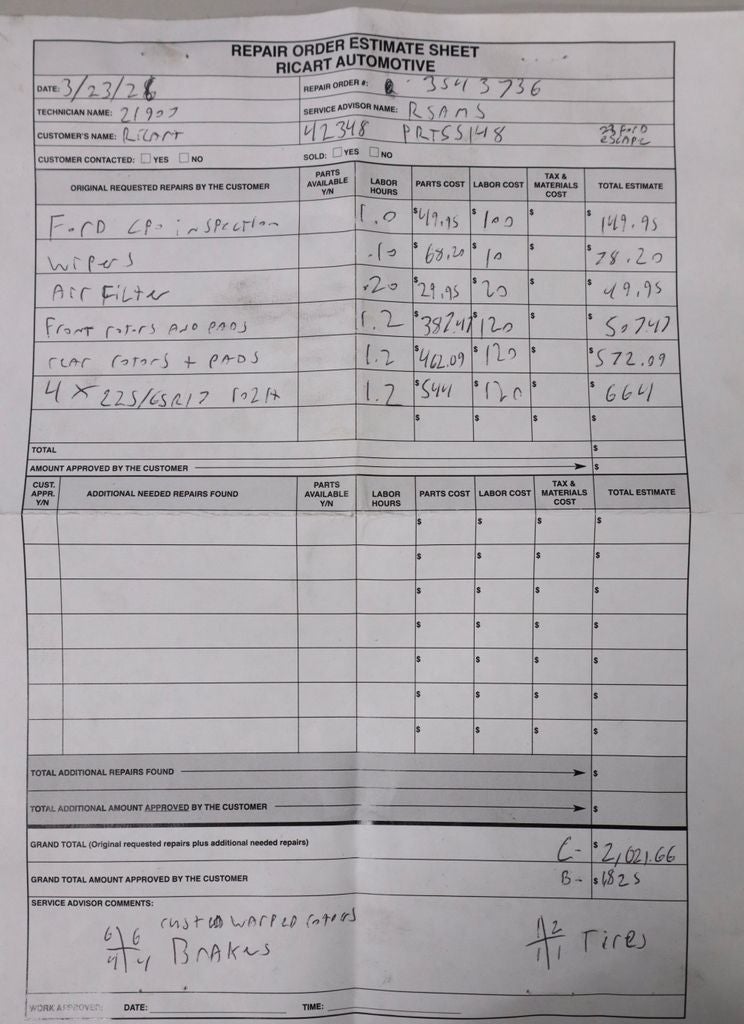 REPAIR ORDER ESTIMATE SHEET
RICART AUTOMOTIVE
DATE: 3/23/26 REPAIR ORDER #: 3543736
TECHNICIAN NAME: 21907 SERVICE ADVISOR NAME: RSAMS
CUSTOMER'S NAME: Ricart 42348 PRTSS148 23 Ford escape
CUSTOMER CONTACTED: YES NO SOLD: YES NO
ORIGINAL REQUESTED REPAIRS BY THE CUSTOMER PARTS AVAILABLE Y/N LABOR HOURS PARTS COST LABOR COST TAX & MATERIALS COST TOTAL ESTIMATE
Ford CPO inspection 1.0 $49.95 $100 $ $149.95
wipers .10 $68.20 $10 $ $78.20
Air Filter .20 $29.95 $20 $ $49.95
Front rotors AND PADS 1.2 $387.47 $120 $ $507.47
rear rotors + PADS 1.2 $462.09 $120 $ $572.09
4 x 225/65R17 1.2 $544 $120 $ $664
$ $ $ $
TOTAL $
AMOUNT APPROVED BY THE CUSTOMER $
CUST. APPR. Y/N ADDITIONAL NEEDED REPAIRS FOUND PARTS AVAILABLE Y/N LABOR HOURS PARTS COST LABOR COST TAX & MATERIALS COST TOTAL ESTIMATE
$ $ $ $
$ $ $ $
$ $ $ $
$ $ $ $
$ $ $ $
$ $ $ $
$ $ $ $
TOTAL ADDITIONAL REPAIRS FOUND $
TOTAL ADDITIONAL AMOUNT APPROVED BY THE CUSTOMER $
GRAND TOTAL (Original requested repairs plus additional needed repairs) C- $2,021.66
GRAND TOTAL AMOUNT APPROVED BY THE CUSTOMER B- $1825
SERVICE ADVISOR COMMENTS:
WARPED rotors
6 6 12
4 4 Brakes 11 11 Tires
WORK APPROVED: DATE: TIME: